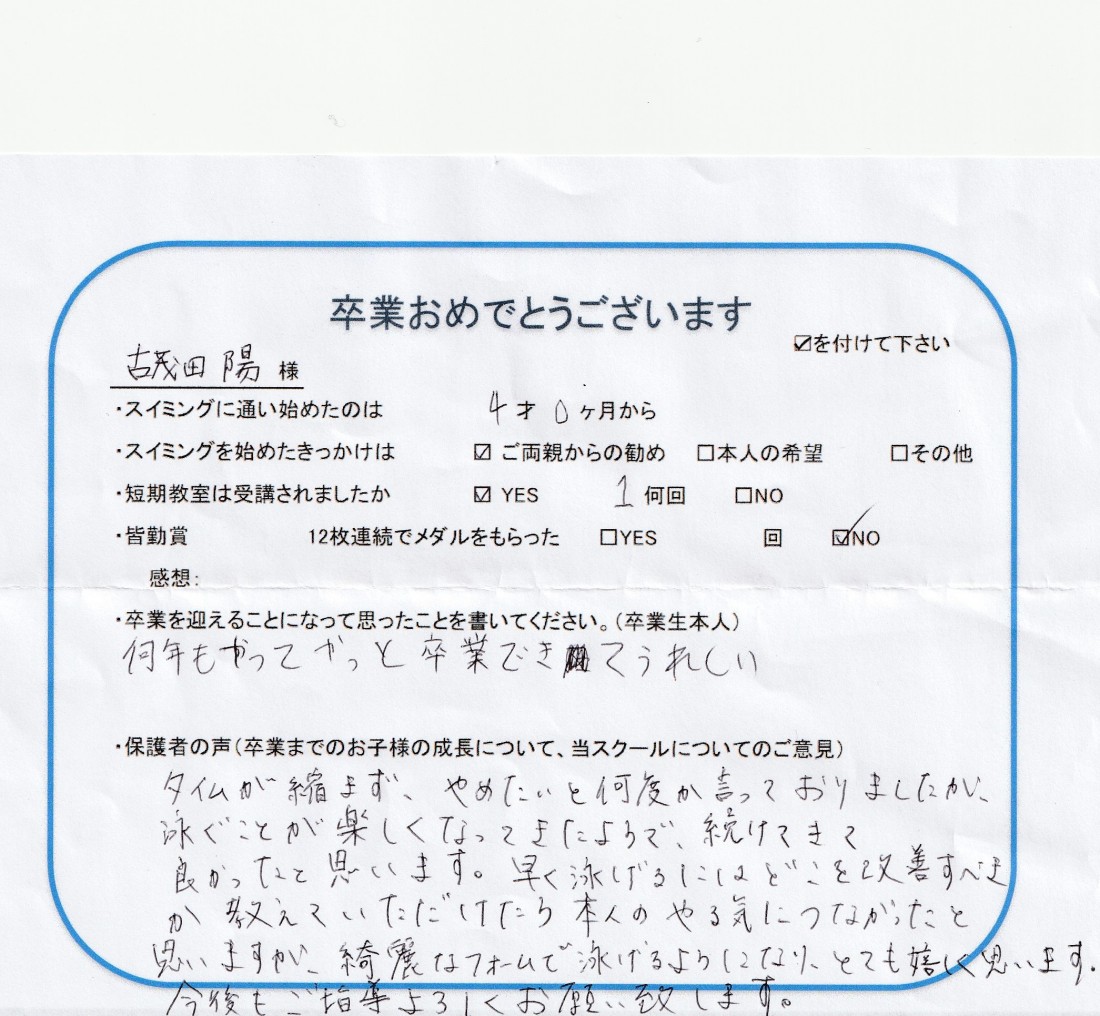 卒業おめでとうございます
☑を付けて下さい
古茂田 陽 様
・スイミングに通い始めたのは 4才 0ヶ月から
・スイミングを始めたきっかけは ☑ ご両親からの勧め □本人の希望 □その他
・短期教室は受講されましたか ☑ YES 1 何回 □NO
・皆勤賞 12枚連続でメダルをもらった □YES 回 ☑NO
感想:
・卒業を迎えることになって思ったことを書いてください。(卒業生本人)
何年もかかってやっと卒業できてうれしい
・保護者の声(卒業までのお子様の成長について、当スクールについてのご意見)
タイムが縮まず、やめたいと何度か言っておりましたが、
泳ぐことが楽しくなってきたようで、続けてきて
良かったと思います。早く泳げるにはどこを改善すべき
か教えていただけたら本人のやる気につながったと
思いますが、綺麗なフォームで泳げるようになり、とても嬉しく思います。
今後もご指導よろしくお願い致します。